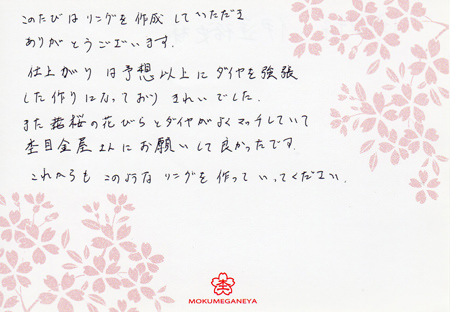 このたびは リングを作成していただき
ありがとうございます。
仕上がりは予想以上にダイヤを強張
した作りになっており きれいでした。
また若桜の花びらとダイヤがよくマッチしていて
杢目金屋さんにお願いして良かったです。
これからも このような リングを 作って いってください.
杢
MOKUMEGANEYA